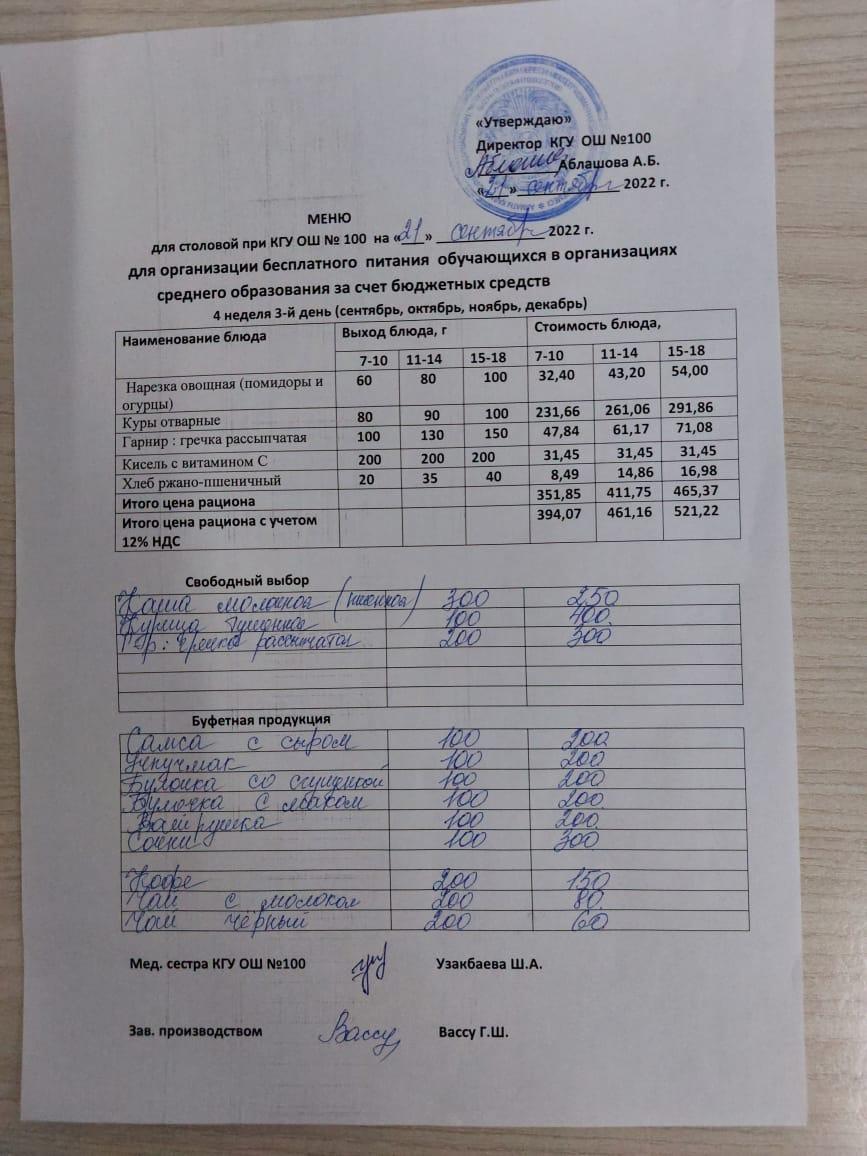 «Утверждаю»
Директор КГУ ОШ №100
Аблашова А.Б.
«21» сентябрь 2022 г.
МЕНЮ
для столовой при КГУ ОШ № 100 на «21» сентябрь 2022 г.
для организации бесплатного питания обучающихся в организациях
среднего образования за счет бюджетных средств
4 неделя 3-й день (сентябрь, октябрь, ноябрь, декабрь)
Наименование блюда Выход блюда, г Стоимость блюда,
7-10 11-14 15-18 7-10 11-14 15-18
Нарезка овощная (помидоры и 60 80 100 32,40 43,20 54,00
огурцы)
Куры отварные 80 90 100 231,66 261,06 291,86
Гарнир : гречка рассыпчатая 100 130 150 47,84 61,17 71,08
Кисель с витамином С 200 200 200 31,45 31,45 31,45
Хлеб ржано-пшеничный 20 35 40 8,49 14,86 16,98
Итого цена рациона 351,85 411,75 465,37
Итого цена рациона с учетом 394,07 461,16 521,22
12% НДС
Свободный выбор
Каша молочная (пшенная) 300 250
Курица тушенная 100 400
Гр: гречка рассыпчатая 200 300
Буфетная продукция
Самса с сыром 100 200
Учпучмак 100 200
Булочка со сгущенкой 100 200
Булочка с маком 100 200
Ватрушка 100 200
Сочни 100 300
Кофе 200 150
Чай с молоком 200 80
Чай чёрный 200 60
Мед. сестра КГУ ОШ №100 Узакбаева Ш.А.
Зав. производством Вассу Вассу Г.Ш.